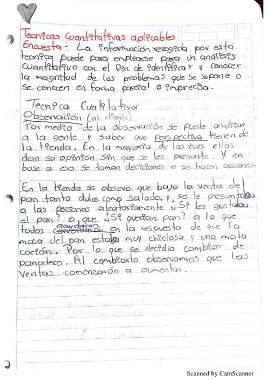 Tecnicas Cuantitativas aplicables
Encuesta:- La información recogida por esta
tecnica puede para emplearse para un analisis
Cuantitativo con el fin de identificar y conocer
la magnitud de los problemas que se supone o
se conocen en forma parcial o imprecisa.
Tecnica Cualitativa
Observacion (al cliente)
Por medio de la observación se puede analizar
a la gente y saber que perspectiva tienen de
la tienda. En la mayoria de las veces ellas
dan su opinión sin que se les pregunte. Y en
base a eso se toman decisiones o se hacen acciones.
En la tienda se observo que bajo la venta del
pan tanto dulce como salado, y se le preguntaba
a las personas aleatoriamente ¿Si les gustaba
el pan? o, que ¿Si querian pan? a lo que
todos en la respuesta de que la
masa del pan estaba muy chiclosa y una mala
cocción. Por lo que se decidio cambiar de
panadero. Al cambiarlo observamos que las
ventas comenzaron a aumentar.
Scanned by CamScanner